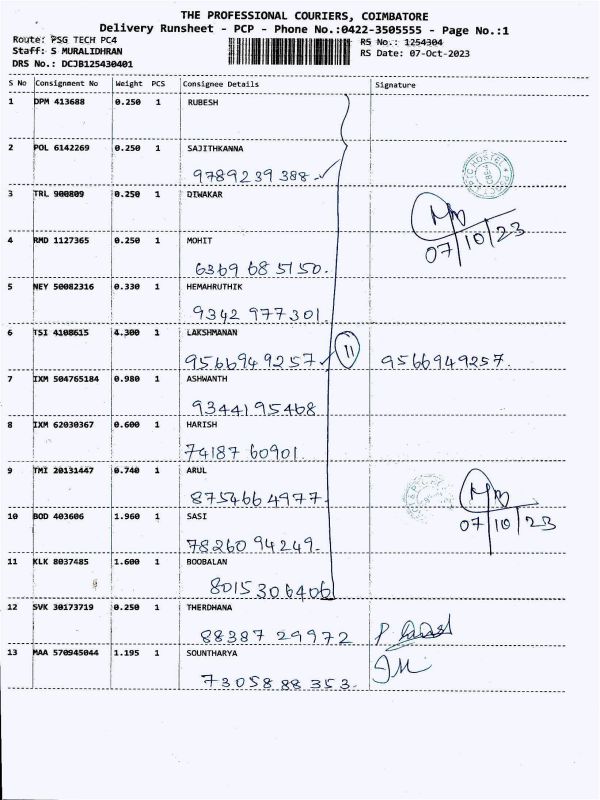 THE PROFESSIONAL COURIERS, COIMBATORE
Delivery Runsheet - PCP - Phone No.:0422-3505555 - Page No.:1
Route: PSG TECH PC4
RS No.: 1254304
Staff: S MURALIDHRAN
RS Date: 07-Oct-2023
DRS No.: DCJB125430401
S No Consignment No Weight PCS Consignee Details Signature
1 DPM 413688 0.250 1 RUBESH
2 POL 6142269 0.250 1 SAJITHKANNA
9789239388
3 TRL 900809 0.250 1 DIWAKAR
07/10/23
4 RMD 1127365 0.250 1 MOHIT
6369 68 5150.
5 NEY 50082316 0.330 1 HEMAHRUTHIK
9342 977301.
6 TSI 4108615 4.300 1 LAKSHMANAN
9566949257 11 9566949257.
7 IXM 504765184 0.980 1 ASHWANTH
9344195468
8 IXM 62030367 0.600 1 HARISH
74187 60901
9 TMI 20131447 0.740 1 ARUL
8754664977.
10 BOD 403606 1.960 1 SASI
07/10/23
78260 94249.
11 KLK 8037485 1.600 1 BOOBALAN
8015306406
12 SVK 30173719 0.250 1 THERDHANA
88387 29972
13 MAA 570945044 1.195 1 SOUNTHARYA
73058 88 353.